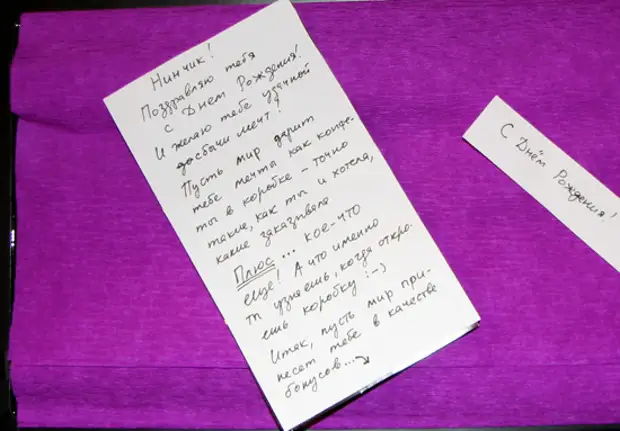 Нинчик!
Поздравляю тебя
с Днем Рождения!
И желаю тебе удачной
добычи мечт!
Пусть мир дарит
тебе мечты как конфе-
ты в коробке - точно
такие, как ты и хотела,
какие заказывала
Плюс ... кое-что
еще! А что именно
ты узнаешь, когда откро-
ешь коробку :-)
Итак, пусть мир при-
несет тебе в качестве
бонусов...
С Днём Рождения!